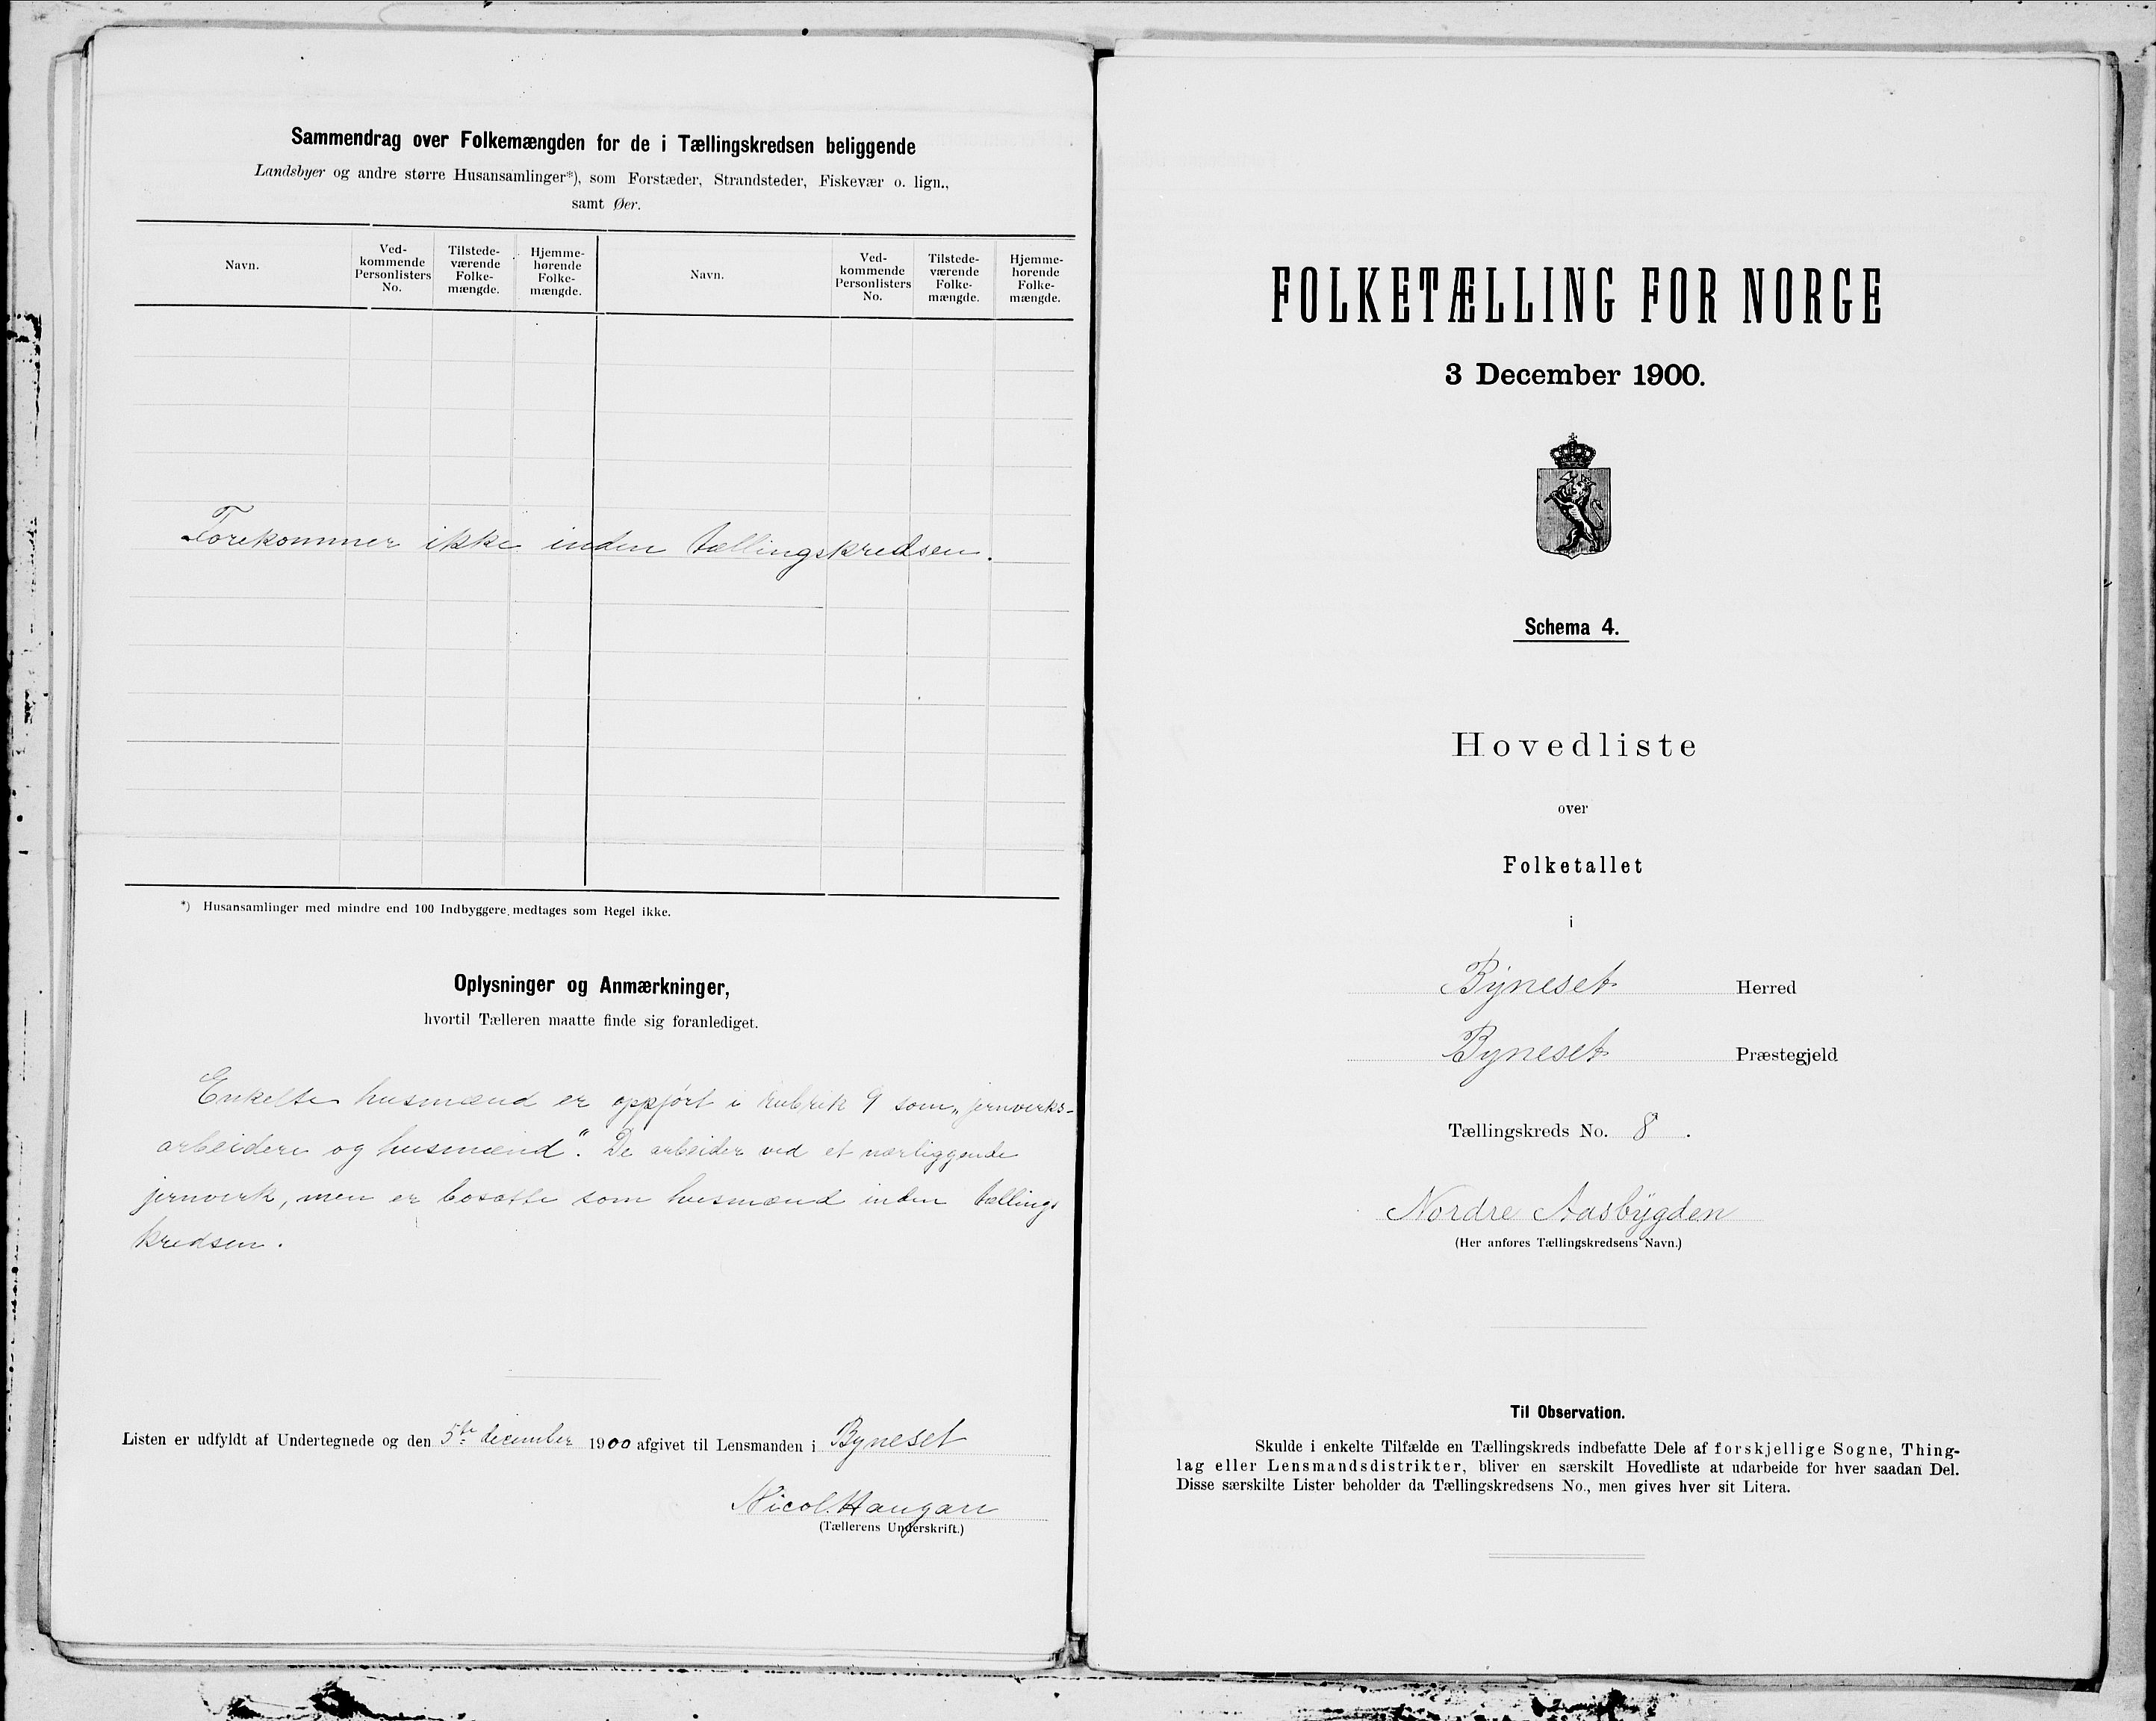 Sammendrag over Folkemængden for de i Tællingskredsen beliggende
Landsbyer og andre større Husansamlinger*), som Forstæder, Strandsteder, Fiskevær o. lign.,
samt Øer.
Navn.
Ved-
kommende
Personlisters
No.
Tilstede-
værende
Folke-
mængde.
Hjemme-
hørende
Folke-
mængde.
Navn.
Ved-
kommende
Personlisters
No.
Tilstede-
værende
Folke-
mængde.
Hjemme-
hørende
Folke-
mængde.
Forekommer ikke inden tællingskredsen.
*) Husansamlinger med mindre end 100 Indbyggere medtages som Regel ikke.
Oplysninger og Anmærkninger,
hvortil Tælleren maatte finde sig foranlediget.
Enkelte husmænd er oppført i rubrik 9 som „jernverks-
arbeidere og husmænd". De arbeider ved et nærliggende
jernverk, men er bosatte som husmænd inden tællings
kredsen.
Listen er udfyldt af Undertegnede og den 5te december 1900 afgivet til Lensmanden i Byneset
Nicol. Haugan
(Tællerens Underskrift.)
FOLKETÆLLING FOR NORGE
3 December 1900.
Schema 4.
Hovedliste
over
Folketallet
i
Byneset Herred
Byneset Præstegjeld
Tællingskreds No. 8.
Nordre Aasbygden
(Her anføres Tællingskredsens Navn.)
Til Observation.
Skulde i enkelte Tilfælde en Tællingskreds indbefatte Dele af forskjellige Sogne, Thing-
lag eller Lensmandsdistrikter, bliver en særskilt Hovedliste at udarbeide for hver saadan Del.
Disse særskilte Lister beholder da Tællingskredsens No., men gives hver sit Litera.